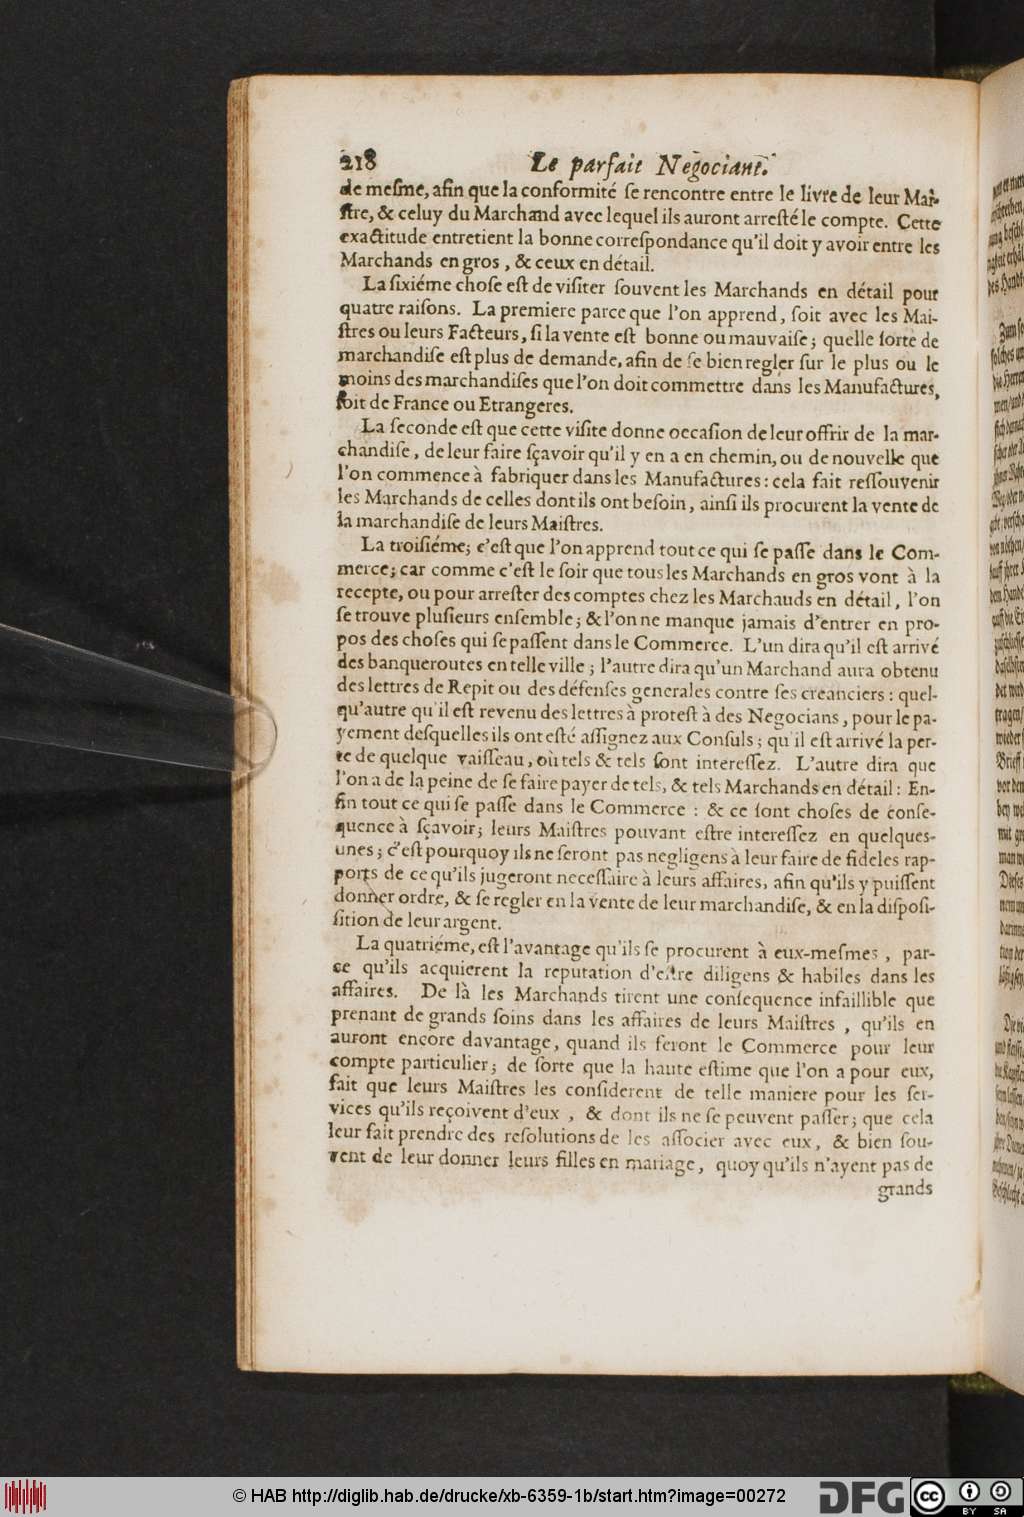 218 Le parfait Negociant.
de meſme, afin que la conformité ſe rencontre entre le livre de leur Mai-
ſtre, & celuy du Marchand avec lequel ils auront arreſté le compte. Cette
exactitude entretient la bonne correſpondance qu'il doit y avoir entre les
Marchands en gros, & ceux en détail.
La ſixiéme choſe eſt de viſiter ſouvent les Marchands en détail pour
quatre raiſons. La premiere parce que l'on apprend, ſoit avec les Mai-
ſtres ou leurs Facteurs, ſi la vente eſt bonne ou mauvaiſe; quelle ſorte de
marchandiſe eſt plus de demande, afin de ſe bien regler ſur le plus ou le
moins des marchandiſes que l'on doit commettre dans les Manufactures,
ſoit de France ou Etrangeres.
La ſeconde eſt que cette viſite donne occaſion de leur offrir de la mar-
chandiſe, de leur faire ſçavoir qu'il y en a en chemin, ou de nouvelle que
l'on commence à fabriquer dans les Manufactures: cela fait reſſouvenir
les Marchands de celles dont ils ont beſoin, ainſi ils procurent la vente de
la marchandiſe de leurs Maiſtres.
La troiſiéme; c'eſt que l'on apprend tout ce qui ſe paſſe dans le Com-
merce; car comme c'eſt le ſoir que tous les Marchands en gros vont à la
recepte, ou pour arreſter des comptes chez les Marchauds en détail, l'on
ſe trouve pluſieurs enſemble; & l'on ne manque jamais d'entrer en pro-
pos des choſes qui ſe paſſent dans le Commerce. L'un dira qu'il eſt arrivé
des banqueroutes en telle ville; l'autre dira qu'un Marchand aura obtenu
des lettres de Repit ou des défenſes generales contre ſes creanciers: quel-
qu'autre qu'il eſt revenu des lettres à proteſt à des Negocians, pour le pa-
yement deſquelles ils ont eſté aſſignez aux Conſuls; qu'il eſt arrivé la per-
te de quelque vaiſſeau, où tels & tels ſont intereſſez. L'autre dira que
l'on a de la peine de ſe faire payer de tels, & tels Marchands en détail: En-
fin tout ce qui ſe paſſe dans le Commerce: & ce ſont choſes de conſe-
quence à ſçavoir; leurs Maiſtres pouvant eſtre intereſſez en quelques-
unes; c'eſt pourquoy ils ne ſeront pas negligens à leur faire de fideles rap-
ports de ce qu'ils jugeront neceſſaire à leurs affaires, afin qu'ils y puiſſent
donner ordre, & ſe regler en la vente de leur marchandiſe, & en la diſpoſi-
ſition de leur argent.
La quatriéme, eſt l'avantage qu'ils ſe procurent à eux-meſmes, par-
ce qu'ils acquierent la reputation d'eſtre diligens & habiles dans les
affaires. De là les Marchands tirent une conſequence infaillible que
prenant de grands ſoins dans les affaires de leurs Maiſtres, qu'ils en
auront encore davantage, quand ils feront le Commerce pour leur
compte particulier; de ſorte que la haute eſtime que l'on a pour eux,
fait que leurs Maiſtres les conſiderent de telle maniere pour les ſer-
vices qu'ils reçoivent d'eux, & dont ils ne ſe peuvent paſſer; que cela
leur fait prendre des reſolutions de les aſſocier avec eux, & bien ſou-
vent de leur donner leurs filles en mariage, quoy qu'ils n'ayent pas de
grands
© HAB http://diglib.hab.de/drucke/xb-6359-1b/start.htm?image=00272
DFG
cc
BY SA